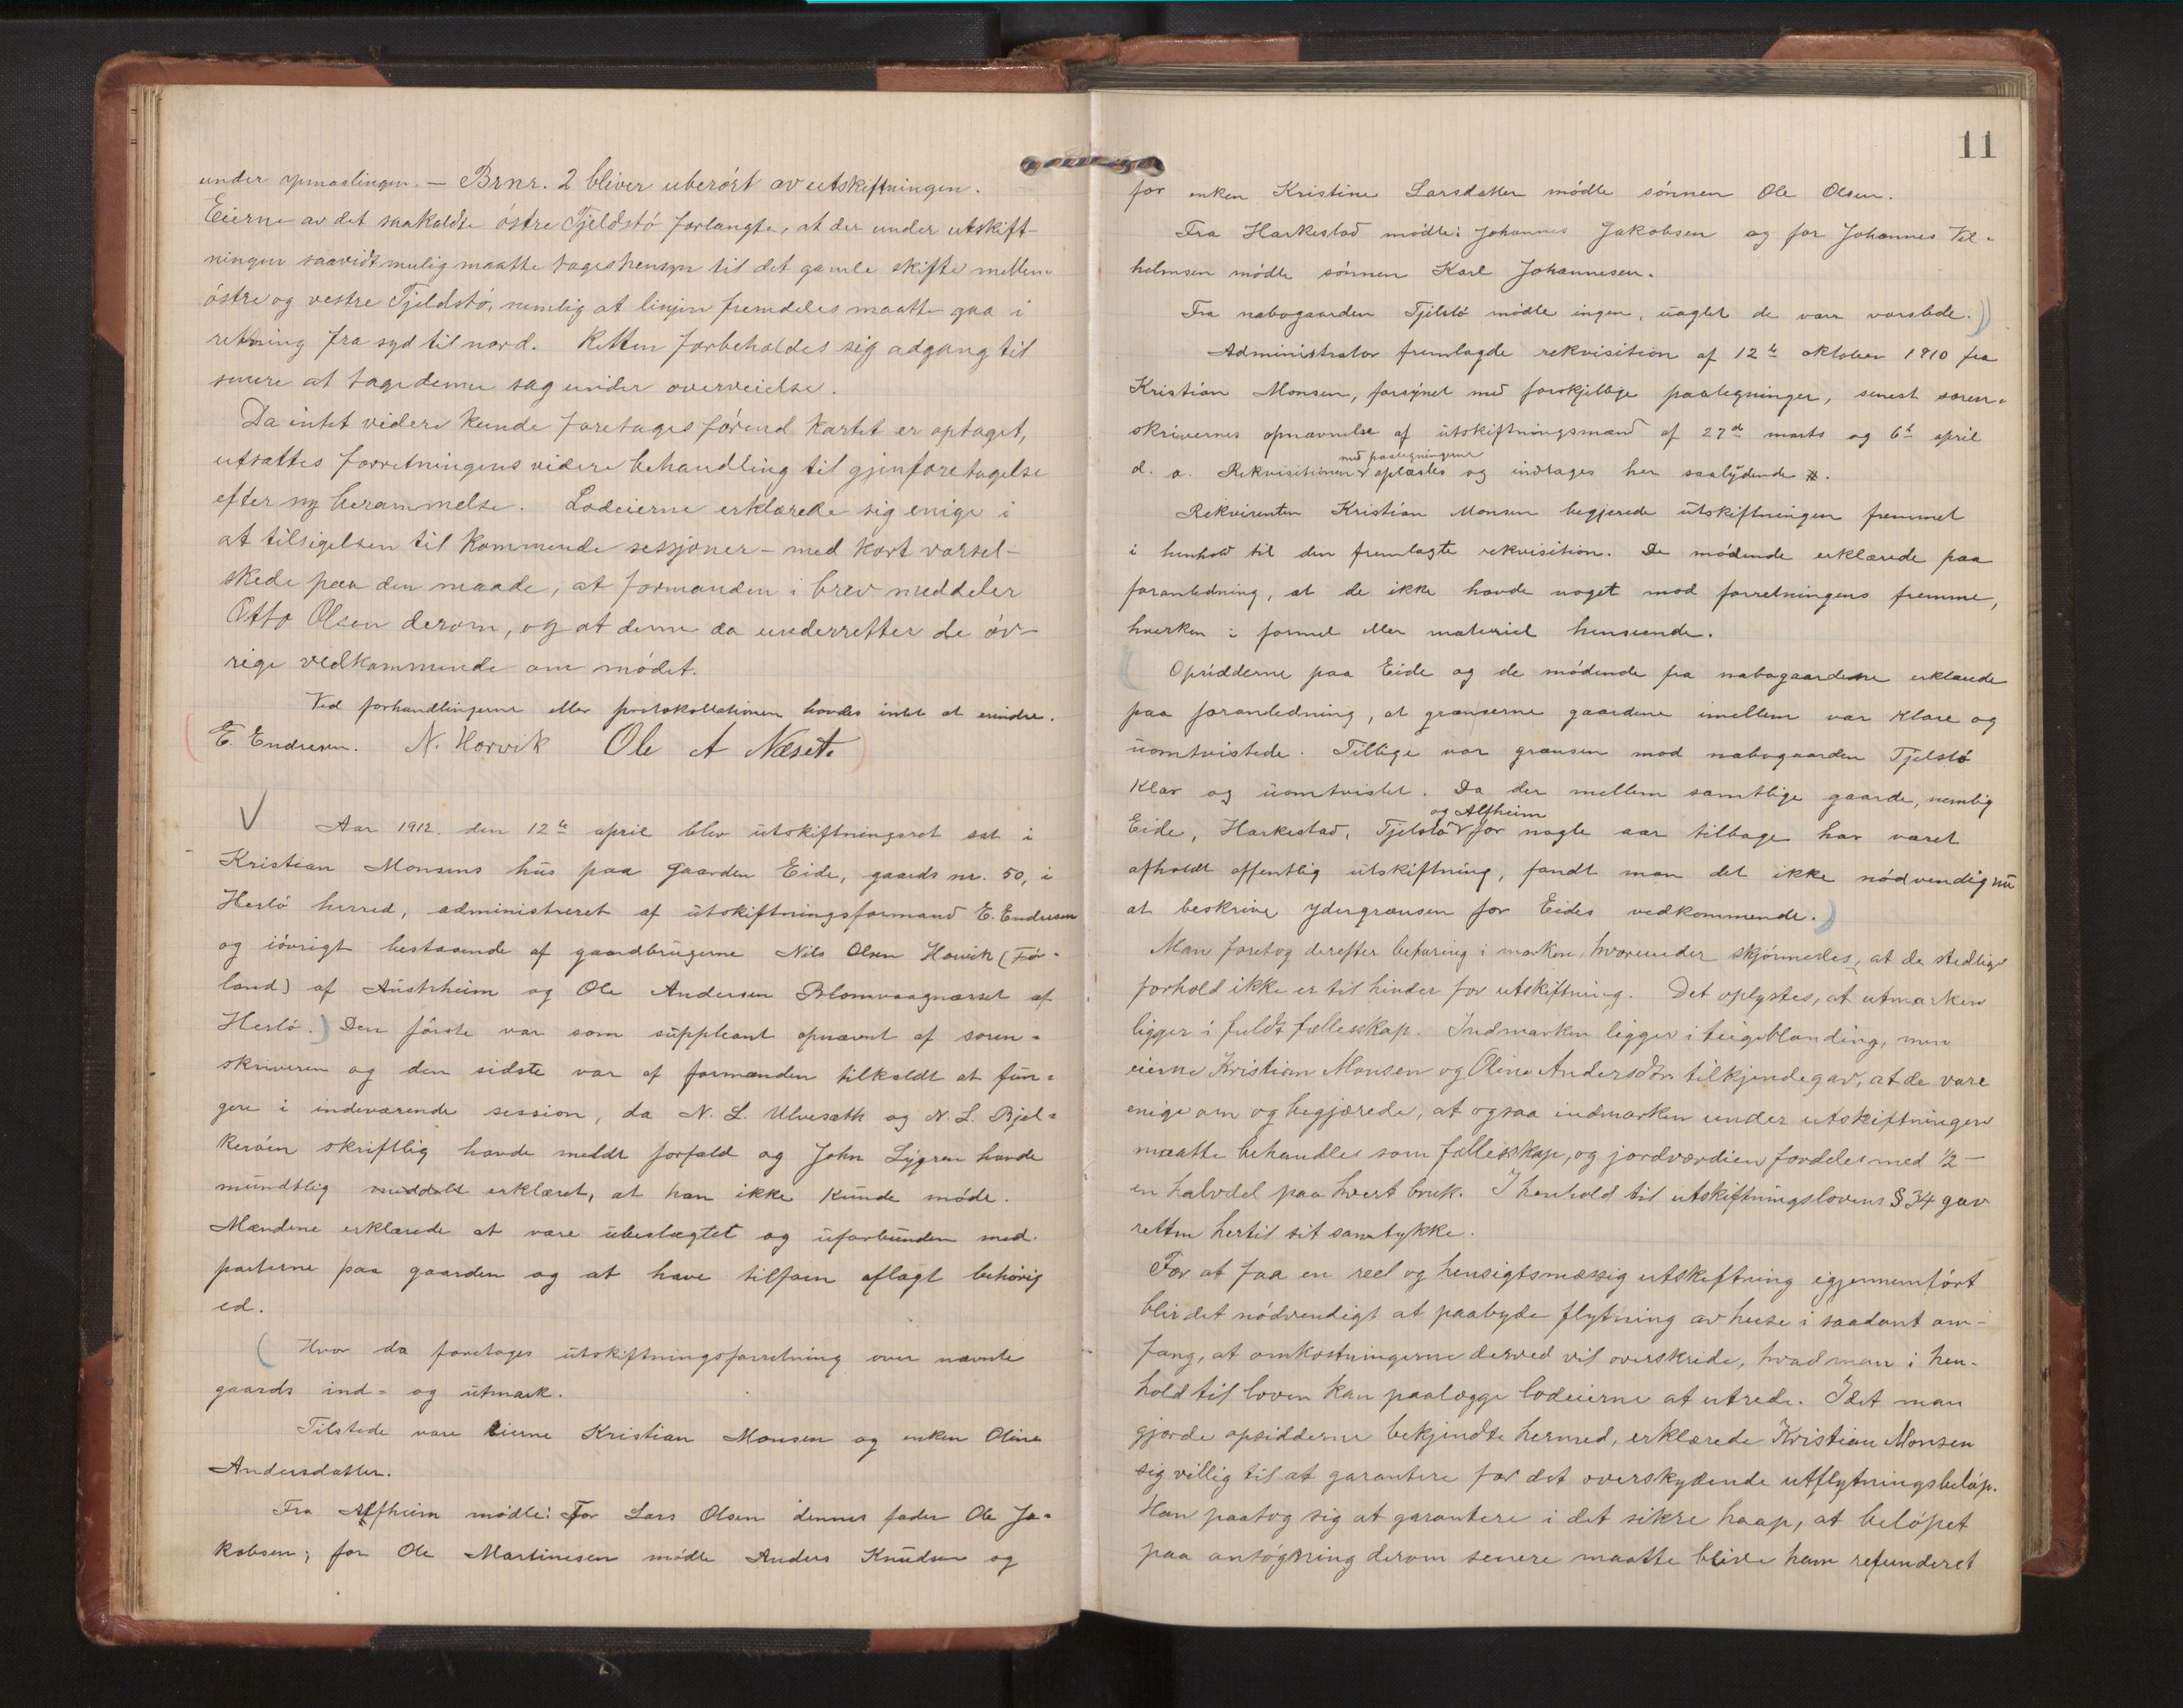 under opmaalingen. — Brnr. 2 bliver uberört av utskiftningen.
Eierne av det saakaldte östre Tjeldstö forlangte, at der under utskift-
ningen saavidt mulig maatte tages hensyn til det gamle skifte mellem
östre og vestre Tjeldstö, nemlig at linjen fremdeles maatte gaa i
retning fra syd til nord. Retten forbeholdes sig adgang til
senere at tage denne sag under overveielse.
Da intet videre kunde foretages förend kartet er optaget,
utsattes forretningens videre behandling til gjenforetagelse
efter ny berammelse. Lodeierne erklærede sig enige i
at tilsigelsen til kommende sessjoner – med kort varsel –
skede paa den maade, at formanden i brev meddeler
Otto Olsen derom, og at denne da underretter de öv-
rige vedkommende om mödet.
Ved forhandlingerne eller protokollationen havdes intet at erindre.
E. Endresen. N. Horvik Ole A Næset.
V Aar 1912. den 12te april blev utskiftningsret sat i
Kristian Monsens hus paa gaarden Eide, gaards nr. 50, i
Herlö herred, administreret af utskiftningsformand E. Endresen
og iövrigt bestaaende af gaardbrugerne Nils Olsen Horvik (För-
land) af Austrheim og Ole Andersen Blomvaagnæsset af
Herlö. Den förste var som suppleant opnævnt af soren-
skriveren og den sidste var af formanden tilkaldt at fun-
gere i indeværende session, da N. L. Ulvesæth og N. L. Bjel-
keröen skriftlig havde meldt forfald og John Lygren havde
mundtlig meddelt erklæret, at han ikke kunde möde.
Mændene erklærede at være ubeslægtet og uforbunden med
parterne paa gaarden og at have tilforn aflagt behörig
ed.
Hvor da foretoges utskiftningsforretning over nævnte
gaards ind- og utmark.
Tilstede vare eierne Kristian Monsen og enken Oline
Andersdatter.
Fra Alfheim mödte: For Lars Olsen dennes fader Ole Ja-
kobsen; for Ole Martinesen mödte Anders Knudsen og
11
for enken Kristine Larsdatter mödte sönnen Ole Olsen.
Fra Harkestad mödte: Johannes Jakobsen og for Johannes Vil-
helmsen mödte sönnen Karl Johannesen.
Fra nabogaarden Tjelstö mödte ingen, uagtet de var varslede.)
Administrator fremlagde rekvisition af 12te oktober 1910 fra
Kristian Monsen, forsynet med forskjellige paategninger, senest soren-
skrivernes opnævnelse af utskiftningsmænd af 27de marts og 6te april
med paategningerne
d. a. Rekvisitionen oplæstes og indtages her saalydende #.
Rekvirenten Kristian Monsen begjerede utskiftningen fremmet
i henhold til den fremlagte rekvisition. De mödende erklærede paa
foranledning, at de ikke havde noget mod forretningens fremme,
hverken i formel eller materiel henseende.
Opsidderne paa Eide og de mödende fra nabogaardene erklærede
paa foranledning, at grænserne gaardene imellem var klare og
uomtvistede. Tillige var grænsen mod nabogaarden Tjelstö
klar og uomtvistet. Da der mellem samtlige gaarde, nemlig
og Alfheim
Eide, Harkestad, Tjelstö for nogle aar tilbage har været
afholdt offentlig utskiftning, fandt man det ikke nödvendig nu
at beskrive ydergrænsen for Eides vedkommende.)
Man foretog derefter befaring i marken, hvorunder skjönnedes, at de stedlige
forhold ikke er til hinder for utskiftning. Det oplystes, at utmarken
ligger i fuldt fællesskap. Indmarken ligger i teigeblanding, men
eierne Kristian Monsen og Oline Andersdtr. tilkjendegav, at de vare
enige om og begjærede, at ogsaa indmarken under utskiftningen
maatte behandles som fællesskap, og jordværdien fordeles med ½ –
en halvdel paa hvert bruk. I henhold til utskiftningslovens § 34 gav
retten hertil sit samtykke.
For at faa en reel og hensigtsmæssig utskiftning igjennemfört
blir det nödvendigt at paabyde flytning av huse i saadant om-
fang, at omkostningerne derved vil overskride, hvad man i hen-
hold til loven kan paalægge lodeierne at utrede. Idet man
gjorde opsidderne bekjendte hermed, erklærede Kristian Monsen
sig villig til at garantere for det overskydende utflytningsbelöp.
Han paatog sig at garantere i det sikre haap, at belöpet
paa ansögning derom senere maatte blive ham refunderet